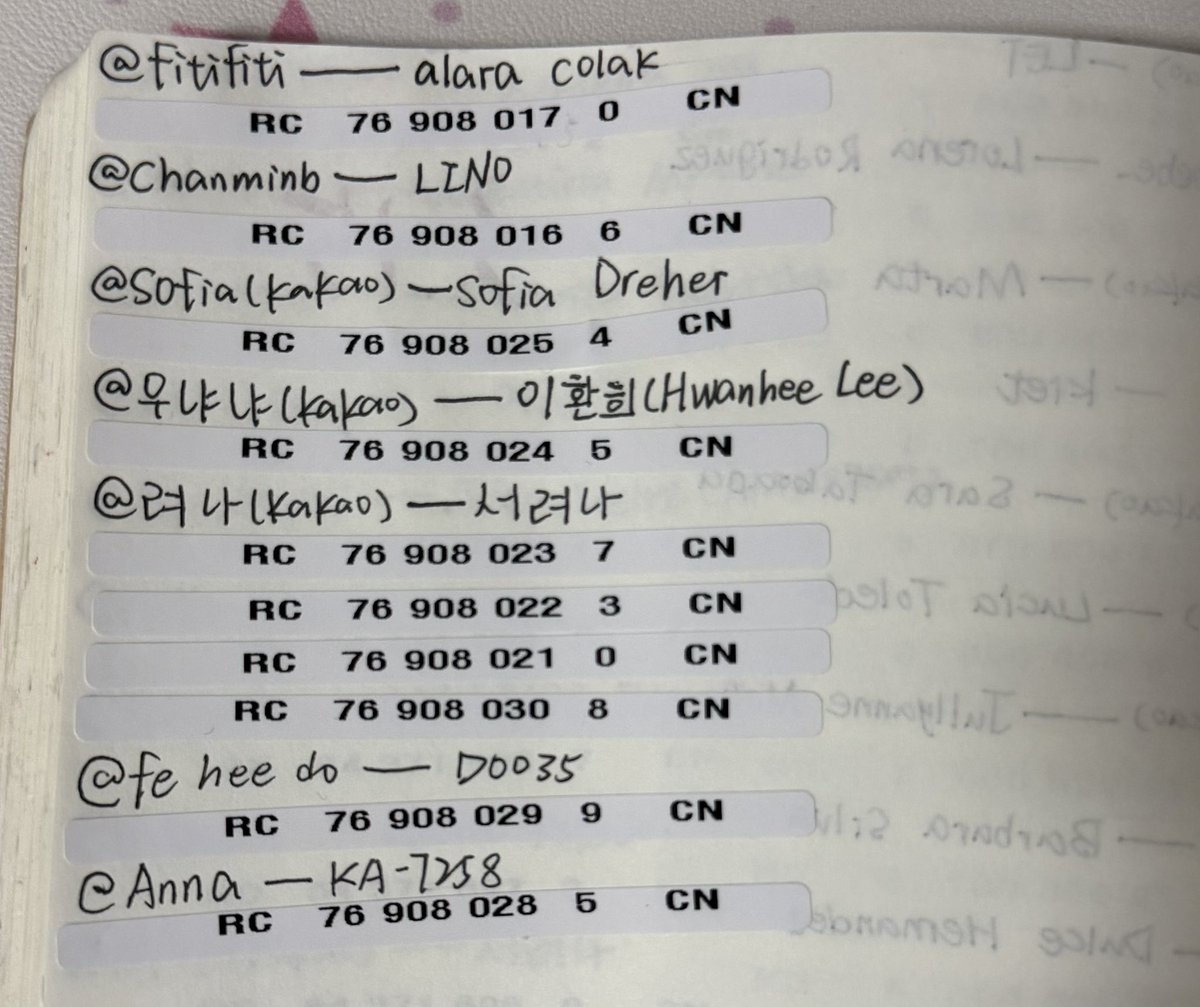 @fitifiti — alara colak
RC 76 908 017 0 CN
@Chanminb — LINO
RC 76 908 016 6 CN
@Sofia(kakao) — Sofia Dreher
RC 76 908 025 4 CN
@우냐냐(kakao) — 이환희(Hwanhee Lee)
RC 76 908 024 5 CN
@려나(kakao) — 서려나
RC 76 908 023 7 CN
RC 76 908 022 3 CN
RC 76 908 021 0 CN
RC 76 908 030 8 CN
@fe hee do — D0035
RC 76 908 029 9 CN
@Anna — KA-7258
RC 76 908 028 5 CN